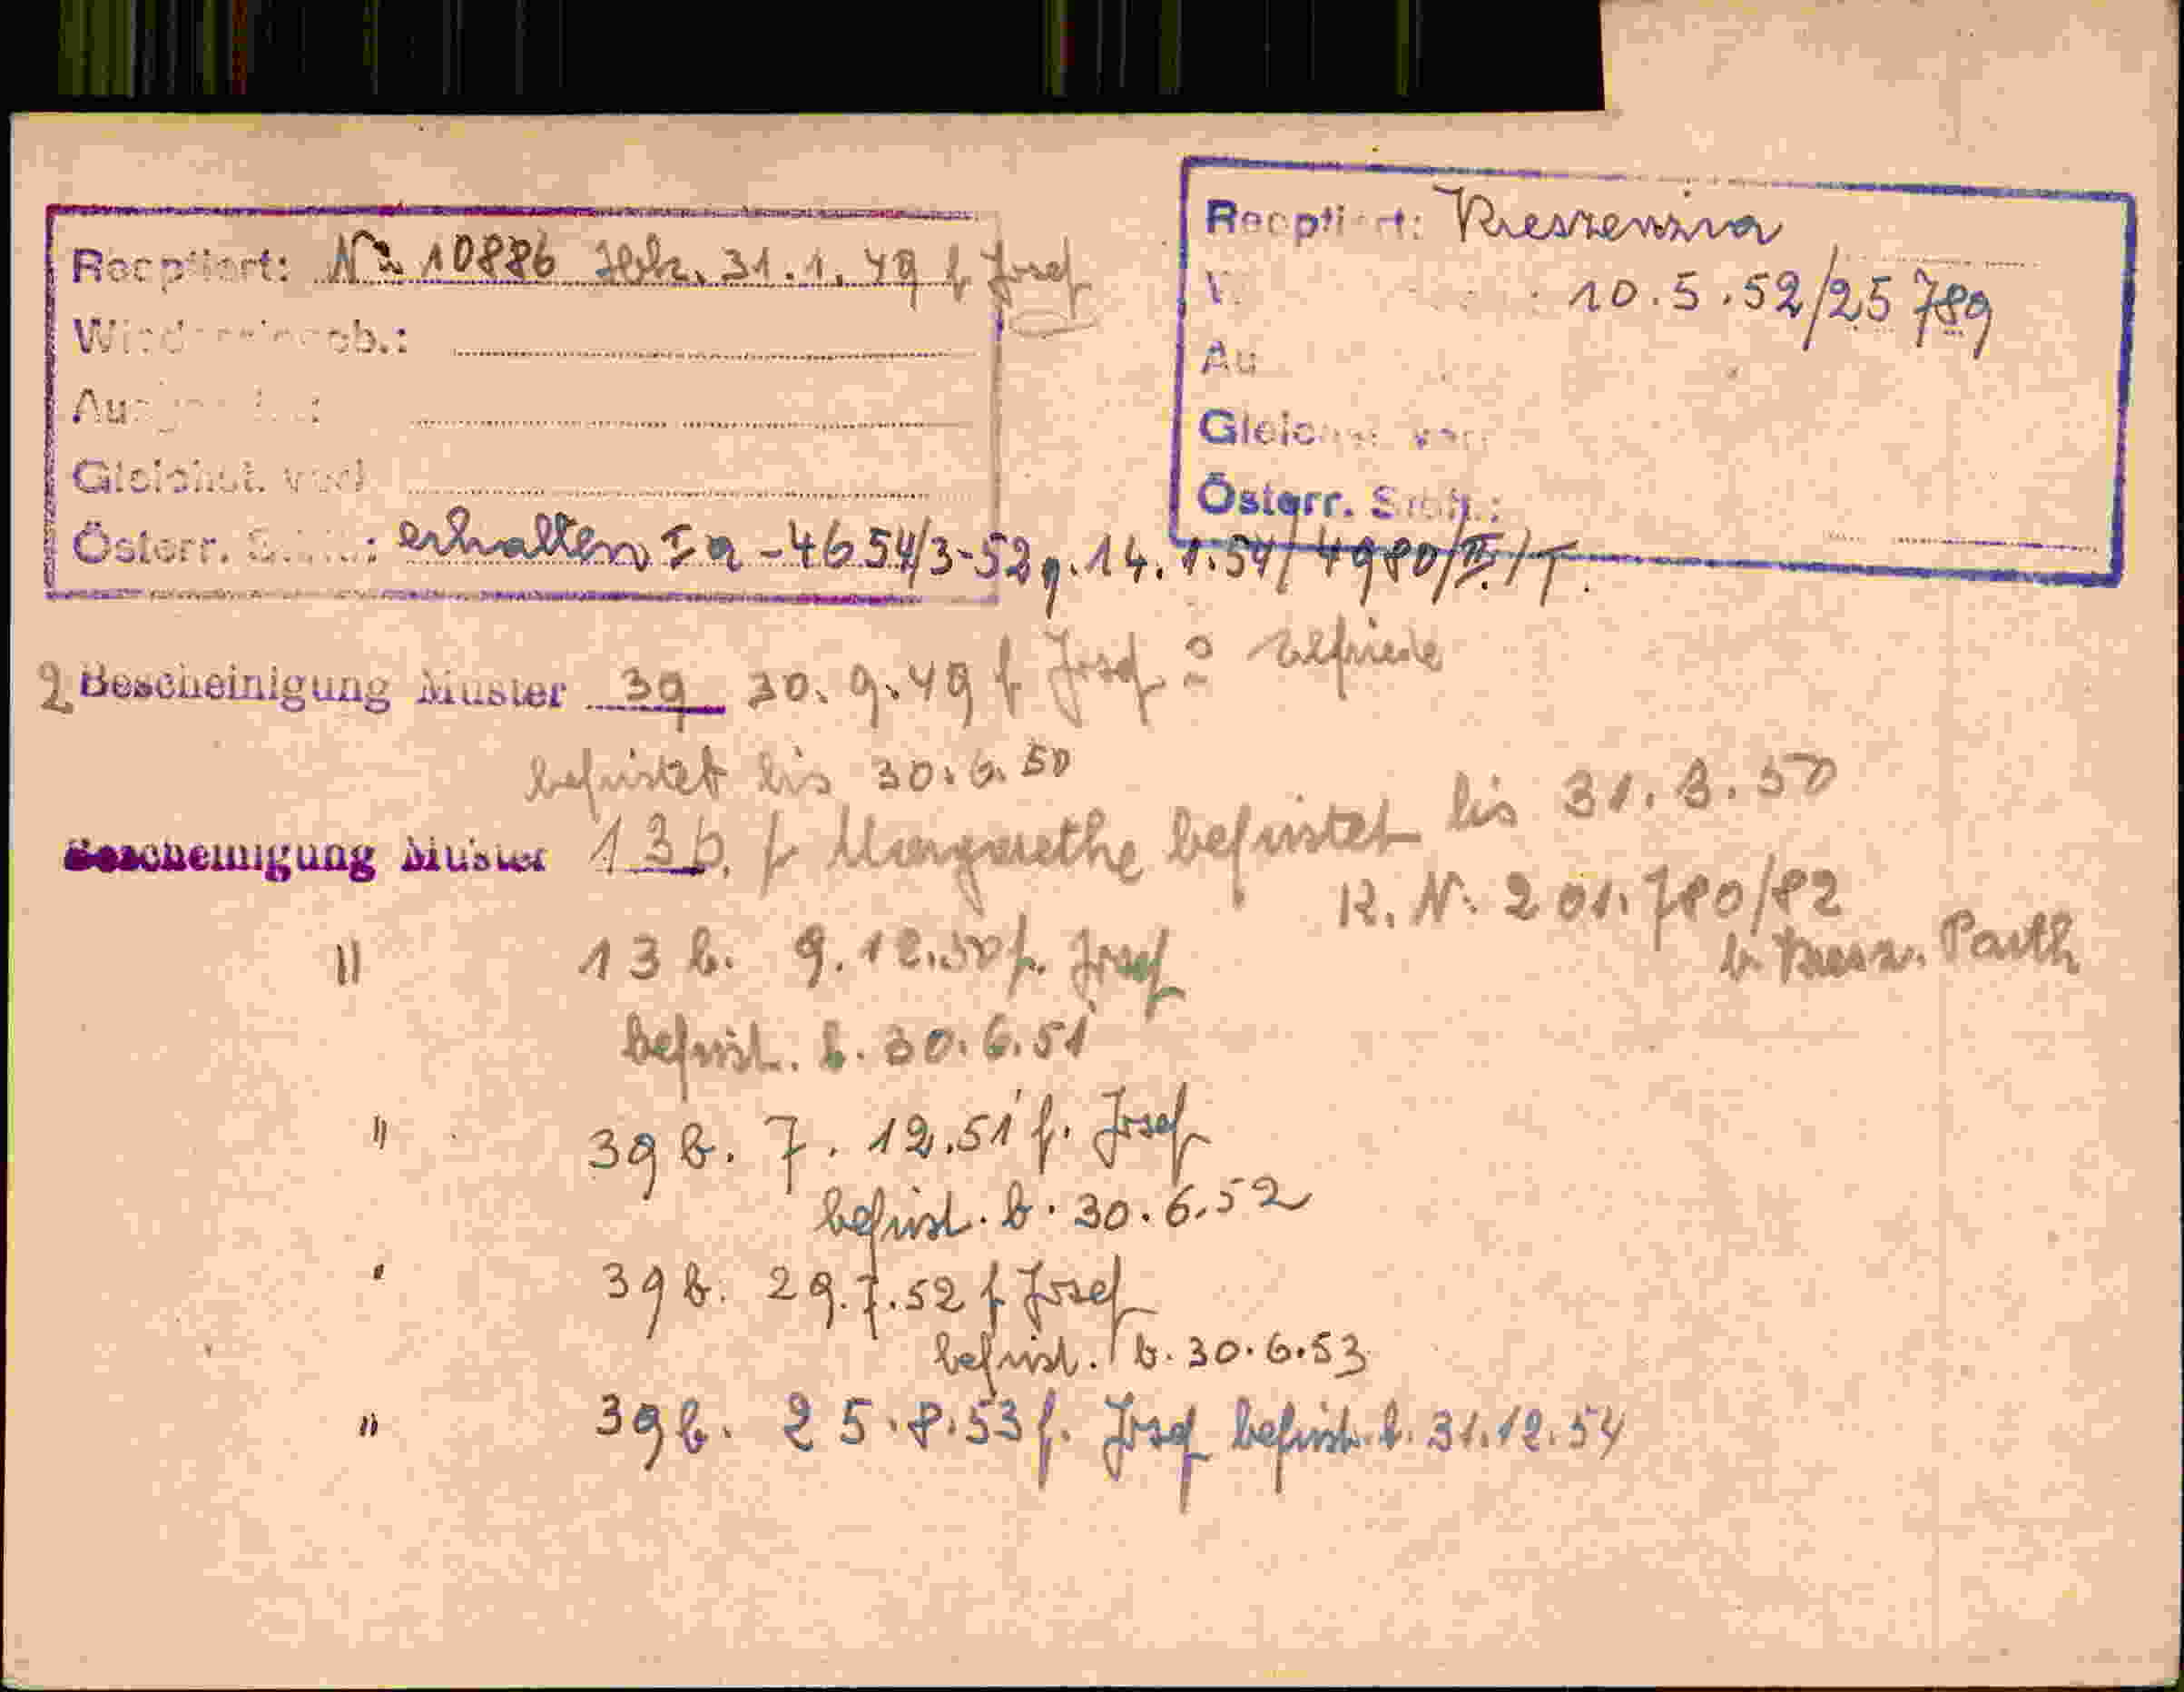 Reoptiert: No 10886 Ibk. 31.1.49 f Josef
Österr. erhalten Ia-4654/3-52 v. 14.1.54/4980/II/T.
Reoptiert:
10.5.52/25789
Au
Österr.
2 Bescheinigung Muster 39 30.9.49 f Josef
befristet bis 30.6.50
Bescheinigung Muster 13b. f Margarethe befristet bis 31.3.50
R. N. 201.780/82
" 13 b. 9.12.50 f. Josef
befrist. b. 30.6.51
" 39 b. 7.12.51 f. Josef
befrist. b. 30.6.52
" 39 b. 29.7.52 f Josef
befrist. b. 30.6.53
" 39 b. 25.8.53 f. Josef befrist. b. 31.12.54